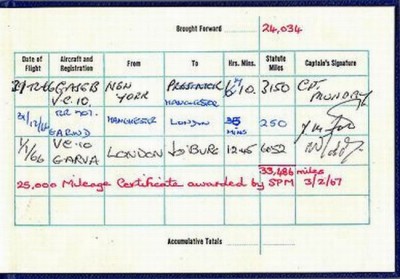 Brought Forward 24,034
Date of Flight Aircraft and Registration From To Hrs. Mins. Statute Miles Captain's Signature
NEW YORK PRESTWICK MANCHESTER 10. 3150 CPT. MUNDAY
VC.10.
31/12/66 707. GARWD MANCHESTER LONDON 35 MINS 250
1/1/66 VC 10 GARVA LONDON Jo'BURG 12.45 6052
33,486 miles
25,000 Mileage Certificate awarded by SPM 3/2/67
Accumulative Totals